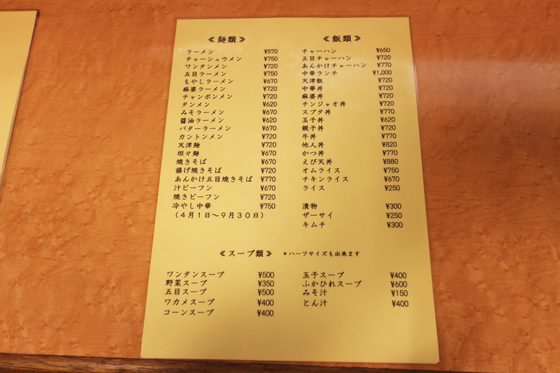 ≪麺類≫
ラーメン ¥570
チャーシュウメン ¥750
ワンタンメン ¥720
五目ラーメン ¥750
もやしラーメン ¥670
麻婆ラーメン ¥720
チャンポンメン ¥720
タンメン ¥620
みそラーメン ¥670
醤油ラーメン ¥620
バターラーメン ¥670
カントンメン ¥720
天津麺 ¥720
坦々麺 ¥670
焼きそば ¥670
揚げ焼きそば ¥720
あんかけ五目焼きそば ¥770
汁ビーフン ¥670
焼きビーフン ¥720
冷やし中華 ¥750
(4月1日〜9月30日)
≪飯類≫
チャーハン ¥650
五目チャーハン ¥720
あんかけチャーハン ¥770
中華ランチ ¥1,000
天津飯 ¥720
中華丼 ¥720
麻婆丼 ¥720
チンジャオ丼 ¥720
スブタ丼 ¥770
玉子丼 ¥620
親子丼 ¥720
牛丼 ¥770
他人丼 ¥820
かつ丼 ¥770
えび天丼 ¥880
オムライス ¥750
チキンライス ¥670
ライス ¥250
漬物 ¥300
ザーサイ ¥250
キムチ ¥300
≪スープ類≫ *ハーフサイズも出来ます
ワンタンスープ ¥500
野菜スープ ¥350
五目スープ ¥500
ワカメスープ ¥400
コーンスープ ¥400
玉子スープ ¥400
ふかひれスープ ¥600
みそ汁 ¥150
とん汁 ¥400